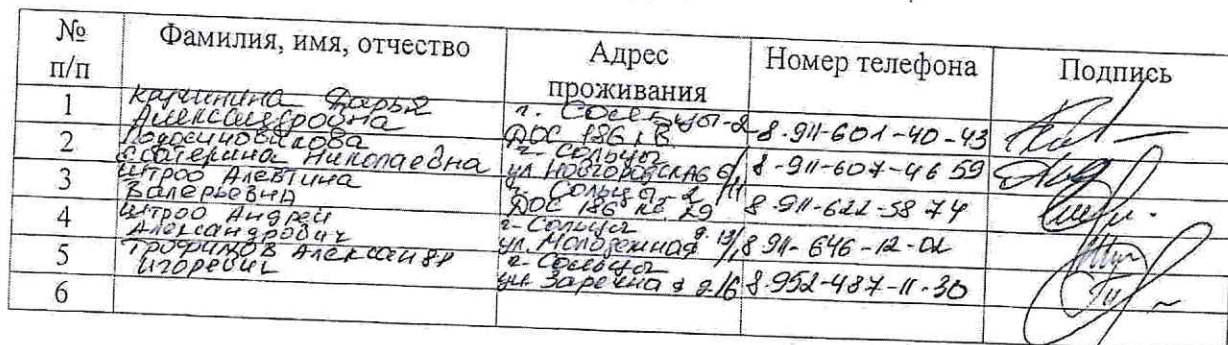 № п/п Фамилия, имя, отчество Адрес проживания Номер телефона Подпись
1 Дарья Александровна г. Сольцы-2 ДОС 186 кв 8-911-601-40-43
2 Подосиновикова Екатерина Николаевна г. Сольцы ул Новгородская 8-911-607-46 59
3 Штроо Алевтина Валерьевна г. Сольцы-2 ДОС 186 кв 29 8-911-622-58 74
4 Штроо Андрей Александрович г. Сольцы ул. Молодежная д. 13/1 8 911-646-12-02
5 Трофимов Александр Игоревич г. Сольцы ул. Заречная д 16 8-952-487-11-30
6